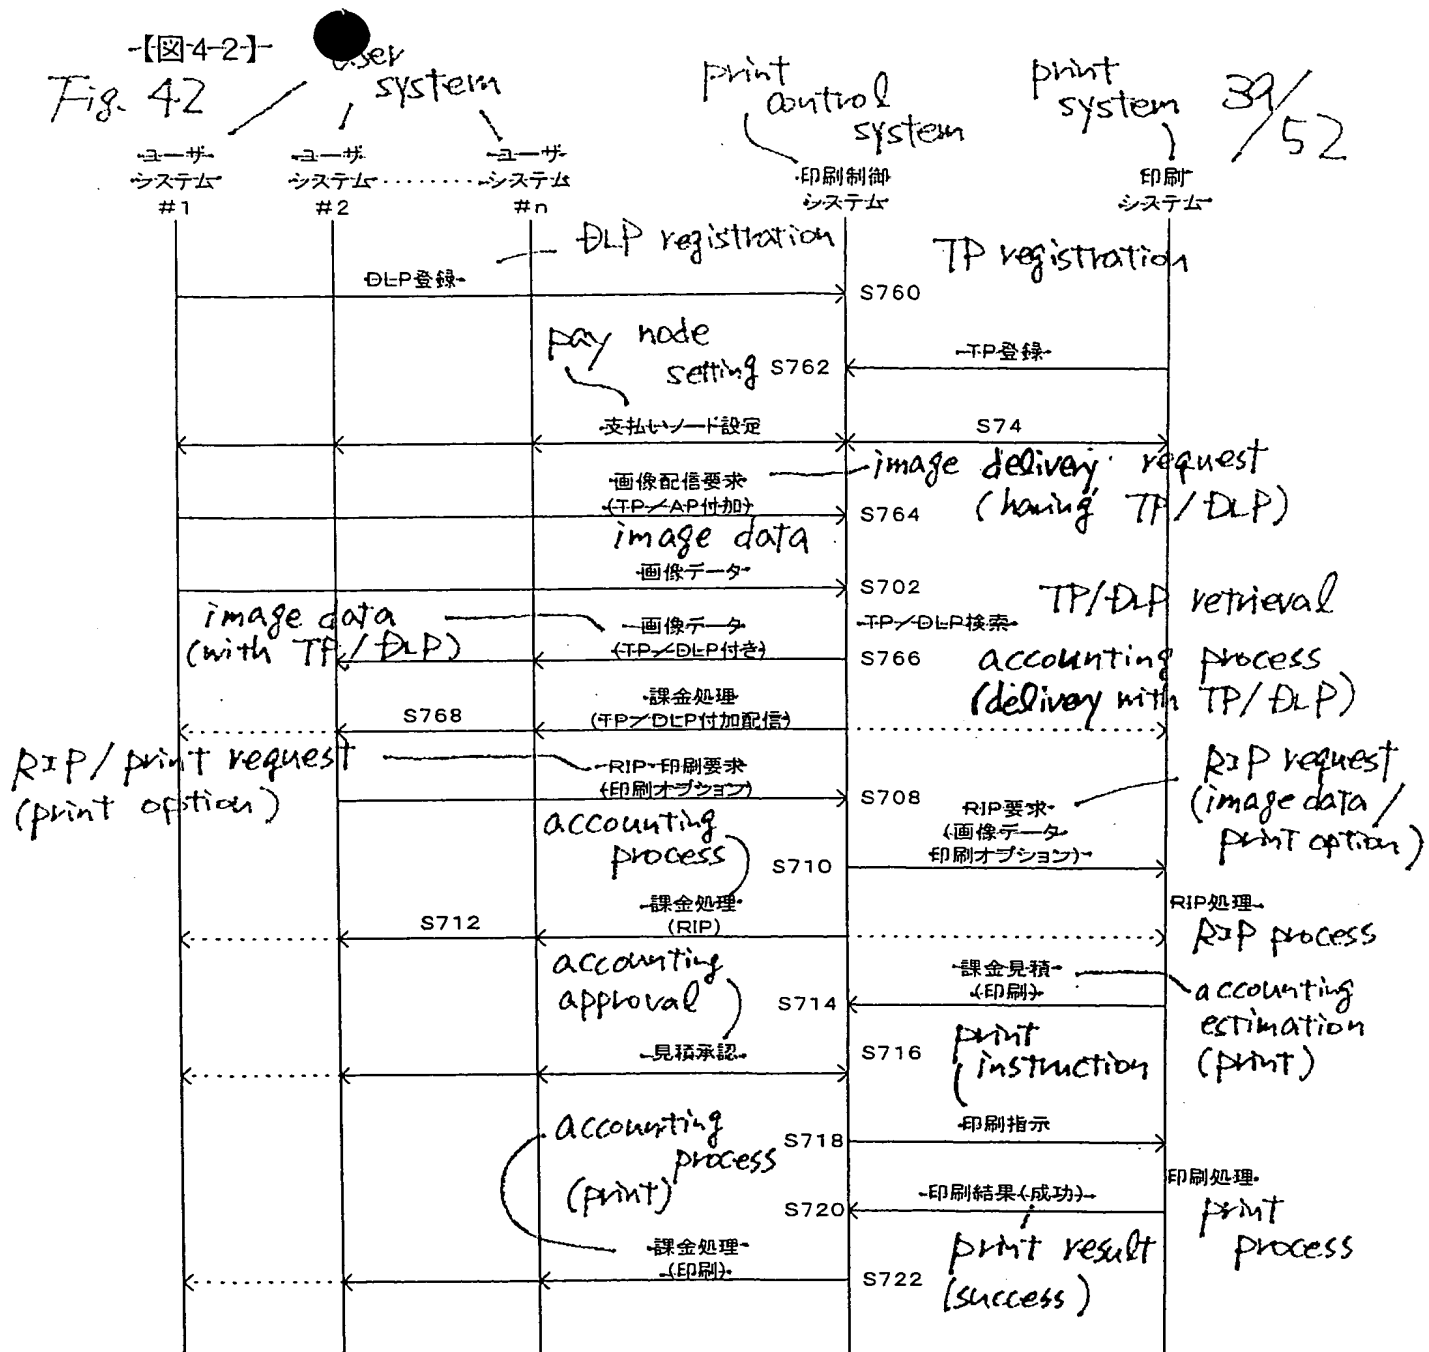 【図42】
Fig. 42
user
system
print
control
system
print
system
39/52
ユーザ
システム
#1
ユーザ
システム
#2
ユーザ
システム
#n
印刷制御
システム
印刷
システム
DLP registration
TP registration
DLP登録
S760
pay node
setting
S762
TP登録
支払いノード設定
S74
画像配信要求
(TP/AP付加)
S764
image delivery request
(having TP/DLP)
image data
画像データ
S702
TP/DLP retrieval
image data
(with TP/DLP)
画像データ
(TP/DLP付き)
TP/DLP検索
S766
accounting process
(delivery with TP/DLP)
課金処理
(TP/DLP付加配信)
S768
RIP/print request
(print option)
RIP 印刷要求
(印刷オプション)
S708
RIP request
(image data/
print option)
RIP要求
(画像データ
印刷オプション)
accounting
process
S710
課金処理
(RIP)
S712
RIP処理
RIP process
accounting
approval
S714
課金見積
(印刷)
accounting
estimation
(print)
見積承認
S716
print
instruction
印刷指示
S718
accounting
process
(print)
印刷処理
print
process
印刷結果(成功)
S720
print result
(success)
課金処理
(印刷)
S722